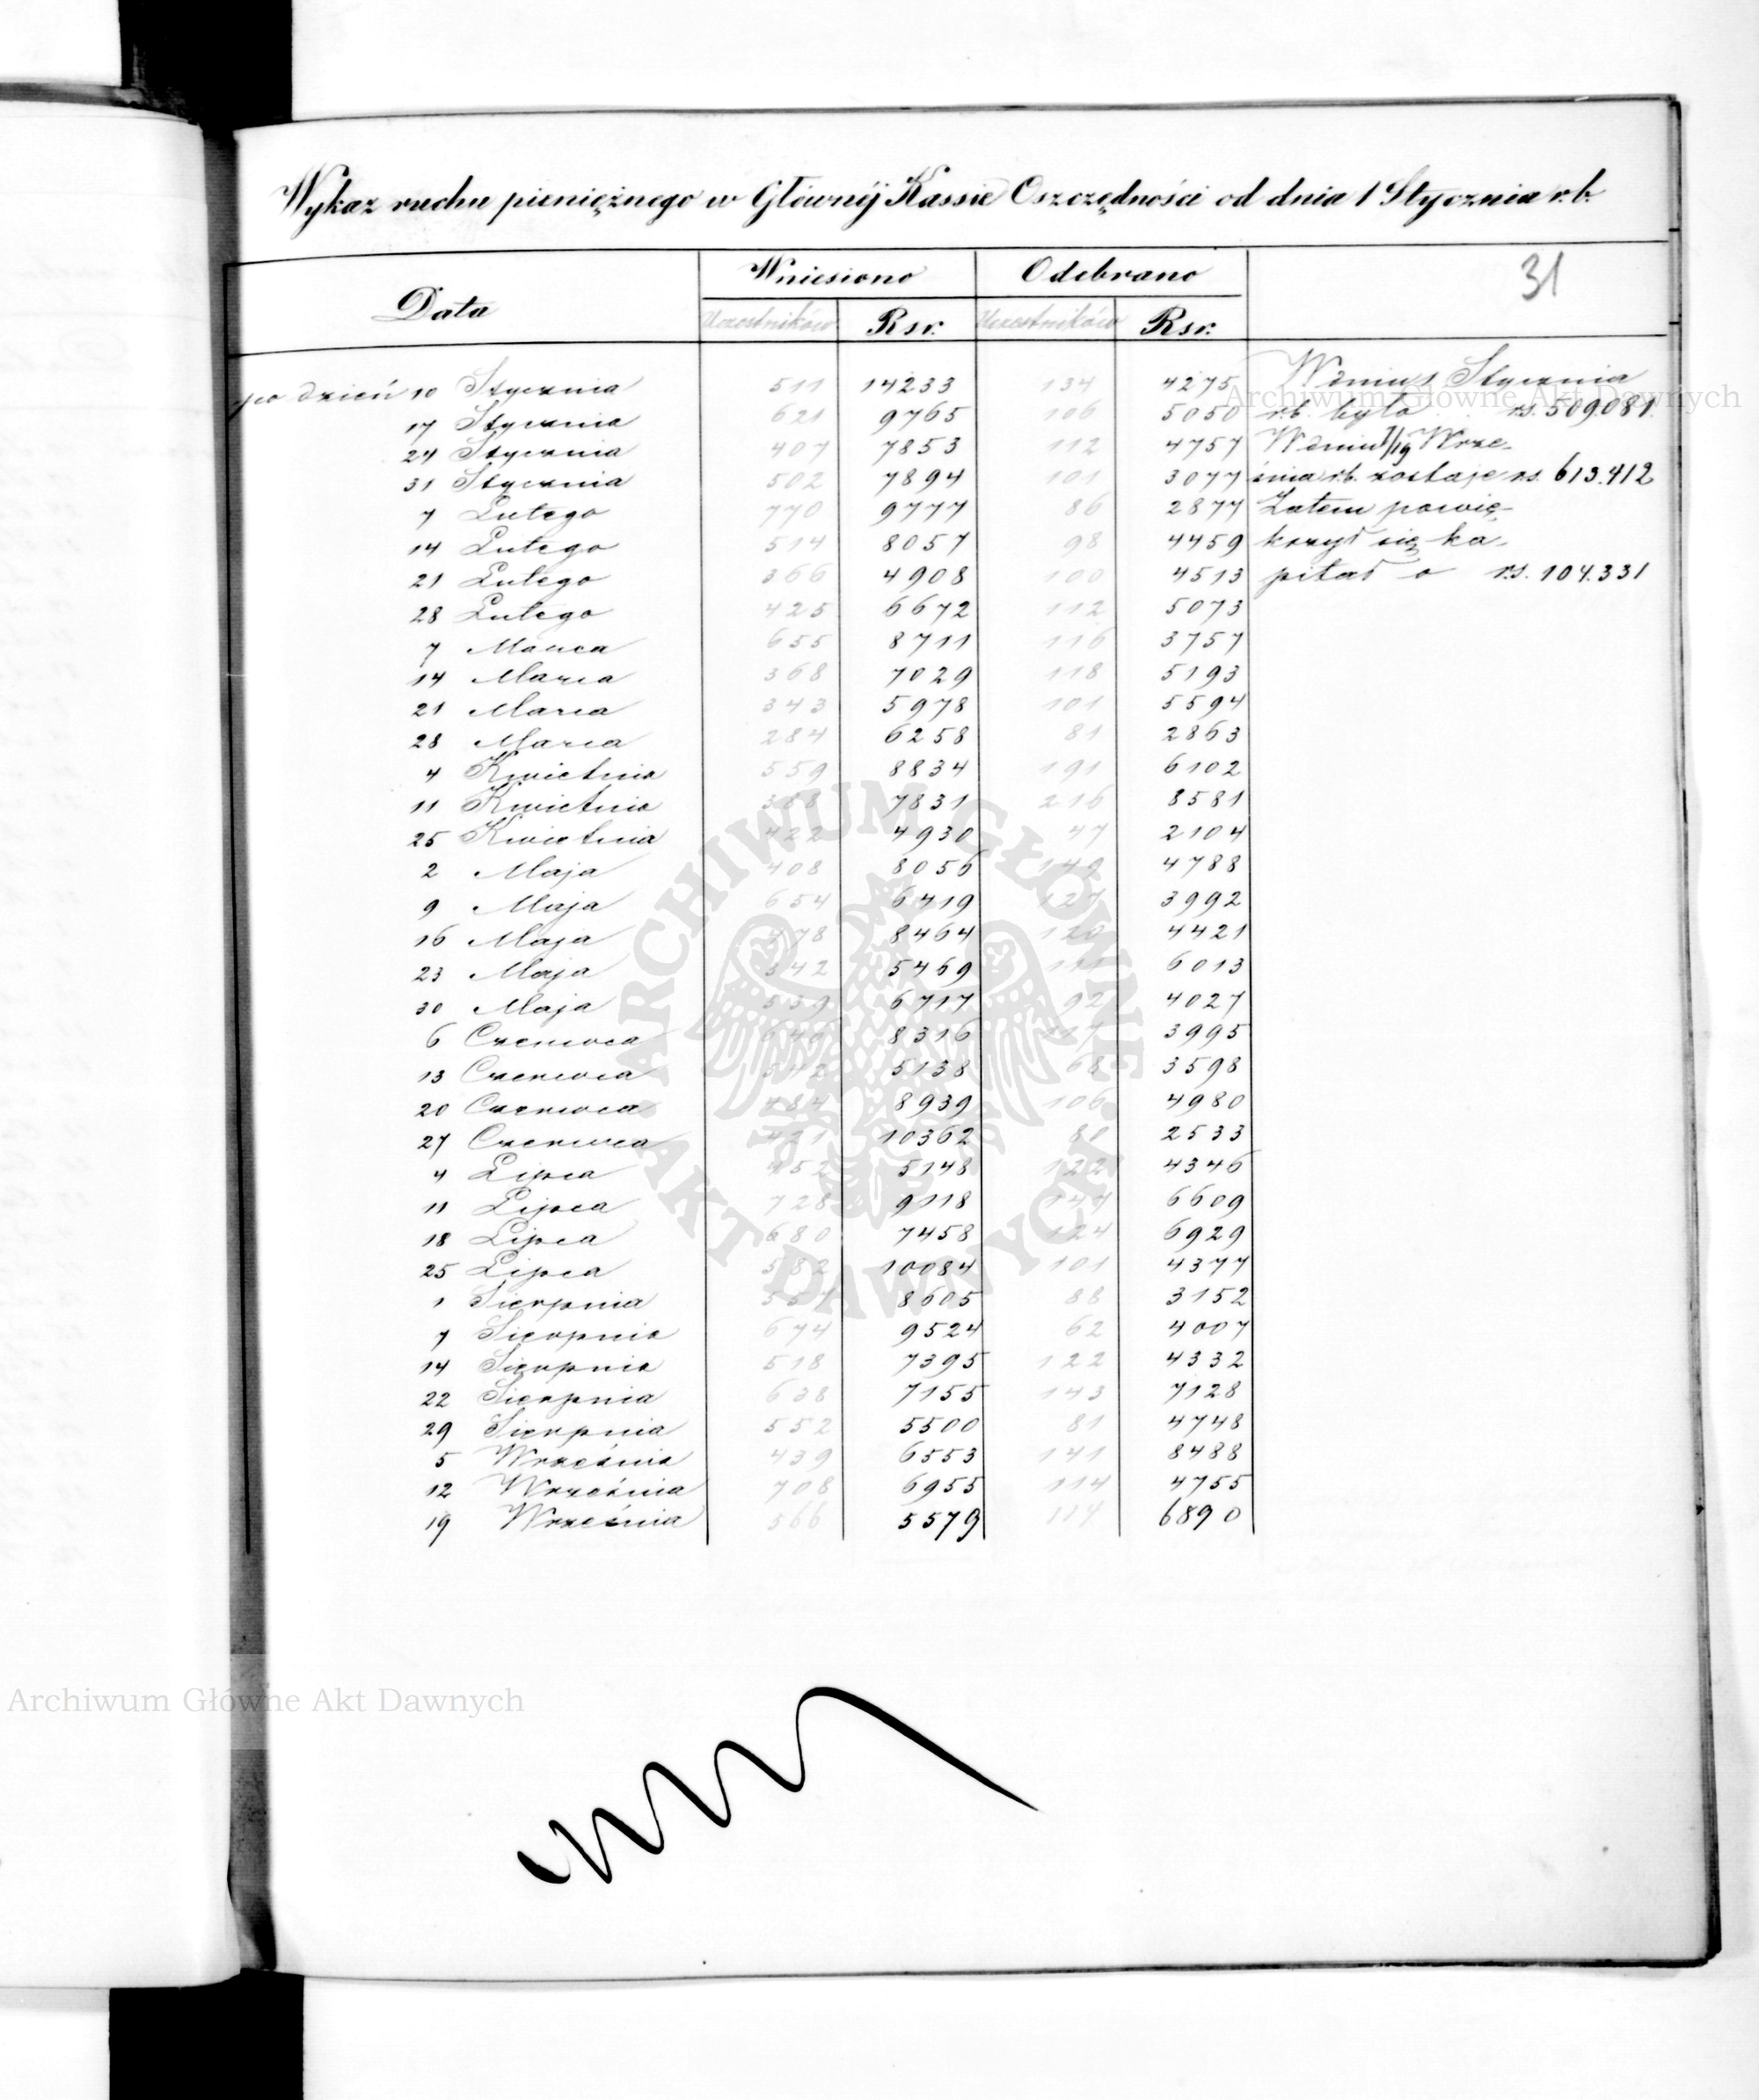 Wykaz ruchu pieniężnego w Głównéj Kassie Oszczędności od dnia 1 Stycznia r.b.
31
Data Wniesiono Odebrano
Uczestników Rsr. Uczestników Rsr.
po dzień 10 Stycznia 511 14233 134 4275 W dniu 1 Stycznia
17 Stycznia 621 9765 106 5050 r.b. było rs. 509.081.
24 Stycznia 407 7853 112 4757 W dniu 7/19 Wrze-
31 Stycznia 502 7894 101 3077 śnia r.b. zostaje rs. 613.412
7 Lutego 770 9777 86 2877 Zatem powię-
14 Lutego 514 8057 98 4459 kszył się ka-
21 Lutego 366 4908 100 4513 pitał o rs. 104.331
28 Lutego 425 6672 112 5073
7 Marca 655 8711 116 3757
14 Marca 368 7029 118 5193
21 Marca 343 5978 101 5594
28 Marca 284 6258 81 2863
4 Kwietnia 559 8834 191 6102
11 Kwietnia 388 7831 216 8581
25 Kwietnia 422 4930 47 2104
2 Maja 408 8056 149 4788
9 Maja 654 6419 127 3992
16 Maja 478 8464 120 4421
23 Maja 342 5469 111 6013
30 Maja 539 6717 92 4027
6 Czerwca 8316 117 3995
13 Czerwca 5138 68 3598
20 Czerwca 484 8939 106 4980
27 Czerwca 421 10362 2533
4 Lipca 452 5148 122 4346
11 Lipca 728 9118 147 6609
18 Lipca 680 7458 124 6929
25 Lipca 582 10084 101 4377
1 Sierpnia 557 8605 88 3152
7 Sierpnia 674 9524 62 4007
14 Sierpnia 518 7395 122 4332
22 Sierpnia 638 7155 143 7128
29 Sierpnia 552 5500 81 4748
5 Września 439 6553 141 8488
12 Września 708 6955 114 4755
19 Września 566 5579 114 6890
Archiwum Główne Akt Dawnych
ARCHIWUM GŁÓWNE AKT DAWNYCH
Archiwum Główne Akt Dawnych